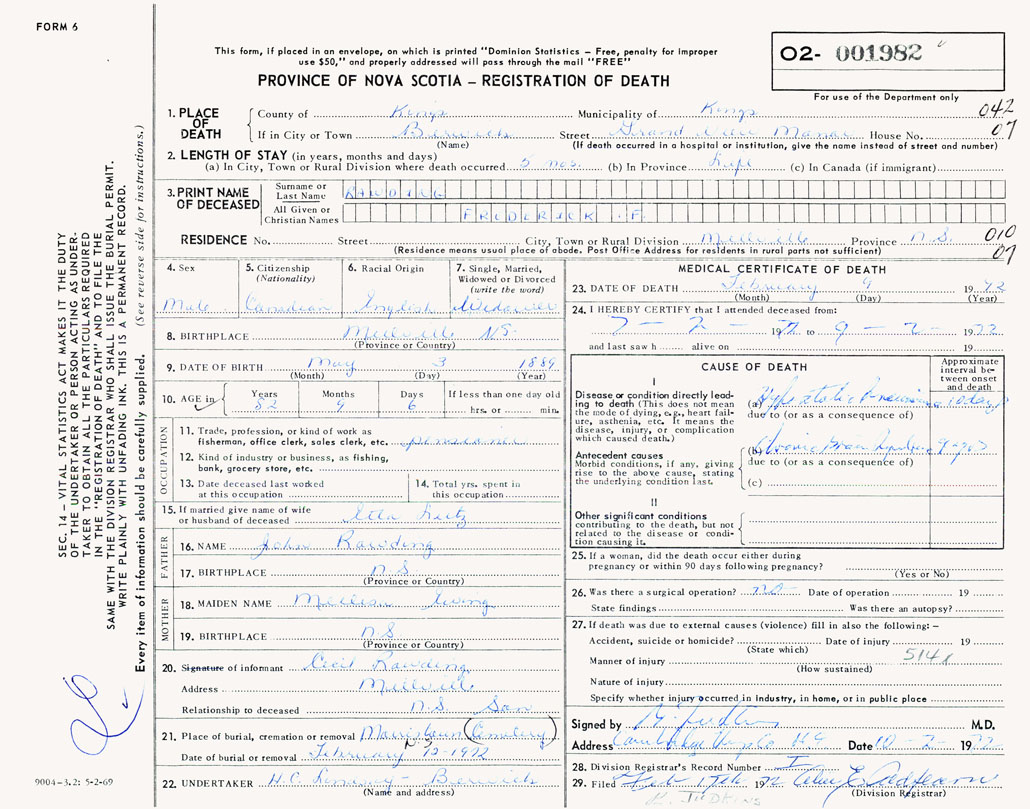 FORM 6
This form, if placed in an envelope, on which is printed "Dominion Statistics – Free, penalty for improper
use $50," and properly addressed will pass through the mail "FREE"
PROVINCE OF NOVA SCOTIA – REGISTRATION OF DEATH
O2- 001982
For use of the Department only
1. PLACE OF DEATH
County of Kings Municipality of Kings 042
If in City or Town Berwick Street Grand View Manor House No. 07
(Name) (If death occurred in a hospital or institution, give the name instead of street and number)
2. LENGTH OF STAY (in years, months and days)
(a) In City, Town or Rural Division where death occurred 5 mos. (b) In Province Life (c) In Canada (if immigrant)
3. PRINT NAME OF DECEASED
Surname or Last Name RAWDING
All Given or Christian Names FREDERICK F
RESIDENCE No. Street City, Town or Rural Division Millville Province N.S. 010
(Residence means usual place of abode. Post Office Address for residents in rural parts not sufficient) 07
4. Sex
Male
5. Citizenship
(Nationality)
Canadian
6. Racial Origin
English
7. Single, Married,
Widowed or Divorced
(write the word)
Widower
8. BIRTHPLACE Millville NS.
(Province or Country)
9. DATE OF BIRTH May 3 1889
(Month) (Day) (Year)
10. AGE in Years Months Days If less than one day old
82 9 6 hrs. or min.
OCCUPATION
11. Trade, profession, or kind of work as
fisherman, office clerk, sales clerk, etc. pensioner
12. Kind of industry or business, as fishing,
bank, grocery store, etc.
13. Date deceased last worked
at this occupation
14. Total yrs. spent in
this occupation
15. If married give name of wife
or husband of deceased Lutz
FATHER
16. NAME John Rawding
17. BIRTHPLACE N S
(Province or Country)
MOTHER
18. MAIDEN NAME Ewing
19. BIRTHPLACE N S
(Province or Country)
20. Signature of informant Cecil Rawding
Address Millville
Relationship to deceased N.S. Son
21. Place of burial, cremation or removal Cemetery
N.S.
Date of burial or removal February 12-1972
22. UNDERTAKER H.C. Berwick
(Name and address)
MEDICAL CERTIFICATE OF DEATH
23. DATE OF DEATH February 9 1972
(Month) (Day) (Year)
24. I HEREBY CERTIFY that I attended deceased from:
7 – 2 – 1972 to 9 – 2 – 1972
and last saw h alive on 19
CAUSE OF DEATH
Approximate
interval be-
tween onset
and death
I
Disease or condition directly lead-
ing to death (This does not mean
the mode of dying, e.g., heart fail-
ure, asthenia, etc. It means the
disease, injury, or complication
which caused death.)
(a) Hypostatic Pneumonia 10 days
due to (or as a consequence of)
Antecedent causes
Morbid conditions, if any, giving
rise to the above cause, stating
the underlying condition last.
(b) Chronic Brain
due to (or as a consequence of)
(c)
II
Other significant conditions
contributing to the death, but not
related to the disease or condi-
tion causing it.
25. If a woman, did the death occur either during
pregnancy or within 90 days following pregnancy?
(Yes or No)
26. Was there a surgical operation? no Date of operation 19
State findings Was there an autopsy?
27. If death was due to external causes (violence) fill in also the following: –
Accident, suicide or homicide? Date of injury 19
(State which)
Manner of injury 514x
(How sustained)
Nature of injury
Specify whether injury occurred in industry, in home, or in public place
Signed by M.D.
Address Date 10 - 2 - 1972
28. Division Registrar's Record Number
29. Filed Feb 17th 1972
(Division Registrar)
K. JUDKINS
SEC. 14 – VITAL STATISTICS ACT MAKES IT THE DUTY
OF THE UNDERTAKER OR PERSON ACTING AS UNDER-
TAKER TO OBTAIN ALL THE PARTICULARS REQUIRED
IN THE "REGISTRATION OF DEATH" AND TO FILE THE
SAME WITH THE DIVISION REGISTRAR WHO SHALL ISSUE THE BURIAL PERMIT.
WRITE PLAINLY WITH UNFADING INK. THIS IS A PERMANENT RECORD.
Every item of information should be carefully supplied. (See reverse side for instructions.)
9004-3.2: 5-2-69